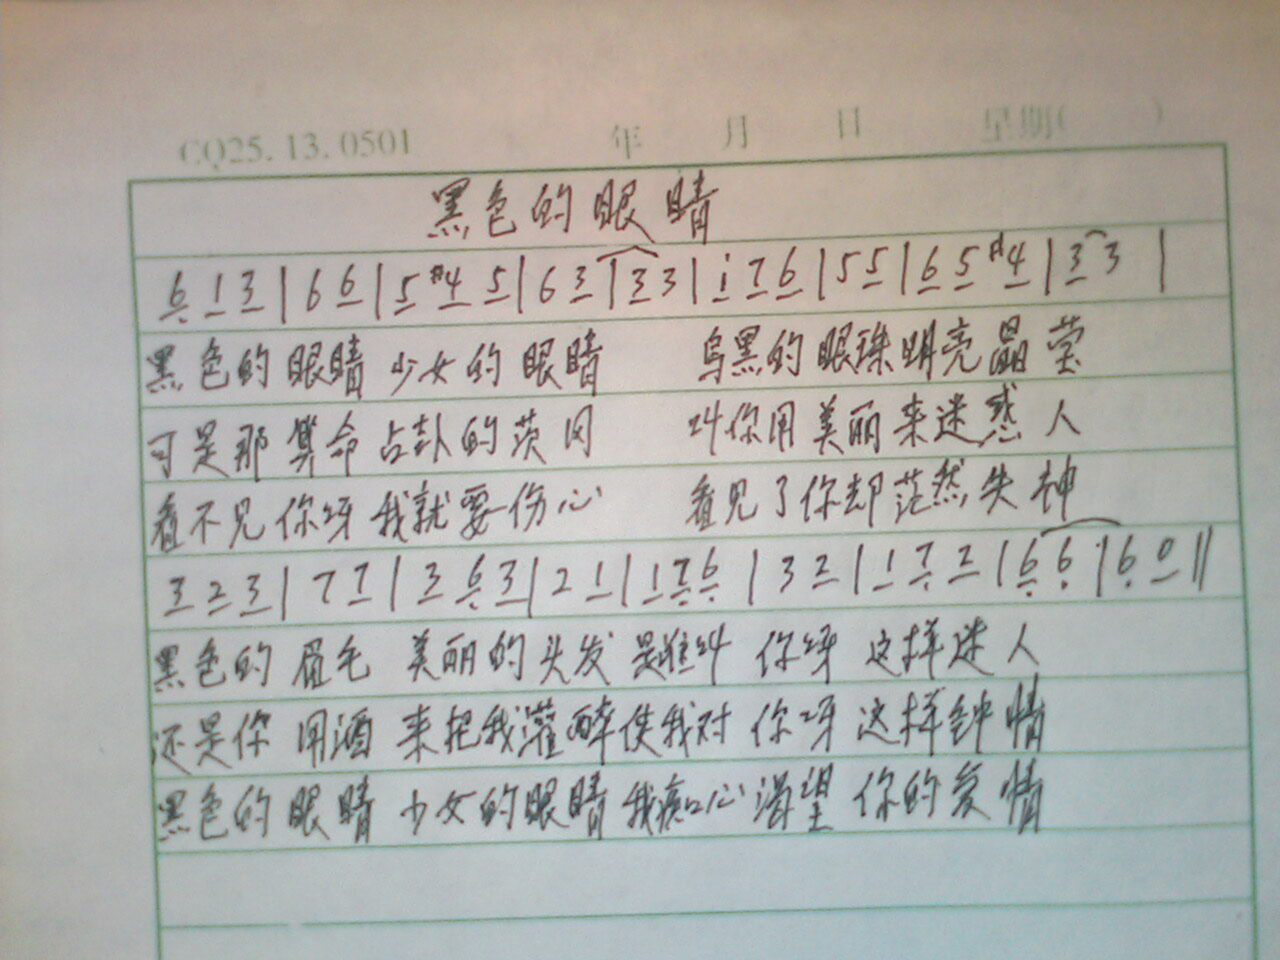 CQ25.13.0501 年 月 日 星期( )
黑色的眼睛
6 1 3 | 6 6 | 5 #4 5 | 6 3 | 3 3 | i 7 6 | 5 5 | 6 5 #4 | 3 3 |
黑色的眼睛 少女的眼睛 乌黑的眼珠明亮晶莹
可是那算命占卦的茨冈 叫你用美丽来迷惑人
看不见你呀我就要伤心 看见了你却茫然失神
3 2 3 | 7 7 | 3 6 3 | 2 1 | 1 7 6 | 3 2 | 1 7 2 | 6 6 | 6 0 ||
黑色的眉毛 美丽的头发 是谁叫 你呀 这样迷人
还是你 用酒 来把我灌醉使我对 你呀 这样钟情
黑色的眼睛 少女的眼睛 我痴心渴望 你的爱情